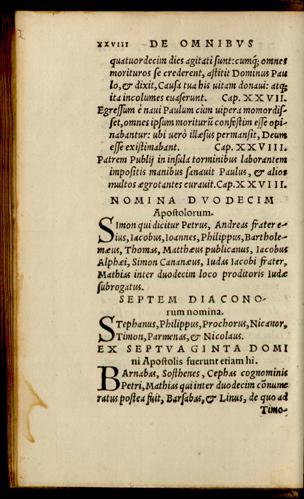 XXVIII DE OMNIBVS
quatuordecim dies agitati sunt: cumq́; omnes
morituros se crederent, astitit Dominus Pau
lo, & dixit, Causa tua his uitam donaui: atq́;
ita incolumes euaserunt. Cap. XXVII.
Egressum è naui Paulum cùm uipera momordis-
set, omnes ipsum moriturū confestim esse opi-
nabantur: ubi uerò illæsus permansit, Deum
esse existimabant. Cap. XXVIII
Patrem Publij in insula torminibus laborantem
impositis manibus sanauit Paulus, & alios
multos ægrotantes curauit. Cap. XXVIII.
NOMINA DVODECIM
Apostolorum.
Simon qui dicitur Petrus, Andreas frater e-
ius, Iacobus, Ioannes, Philippus, Barthole-
mæus, Thomas, Matthæus publicanus, Iacobus
Alphæi, Simon Cananæus, Iudas Iacobi frater,
Mathias inter duodecim loco proditoris Iudæ
subrogatus.
SEPTEM DIACONO-
rum nomina.
Stephanus, Philippus, Prochorus, Nicanor,
Timon, Parmenas, & Nicolaus.
EX SEPTVAGINTA DOMI
ni Apostolis fuerunt etiam hi.
Barnabas, Sosthenes, Cephas cognominis
Petri, Mathias qui inter duodecim cōnume
ratus postea fuit, Barsabas, & Linus, de quo ad
Timo-